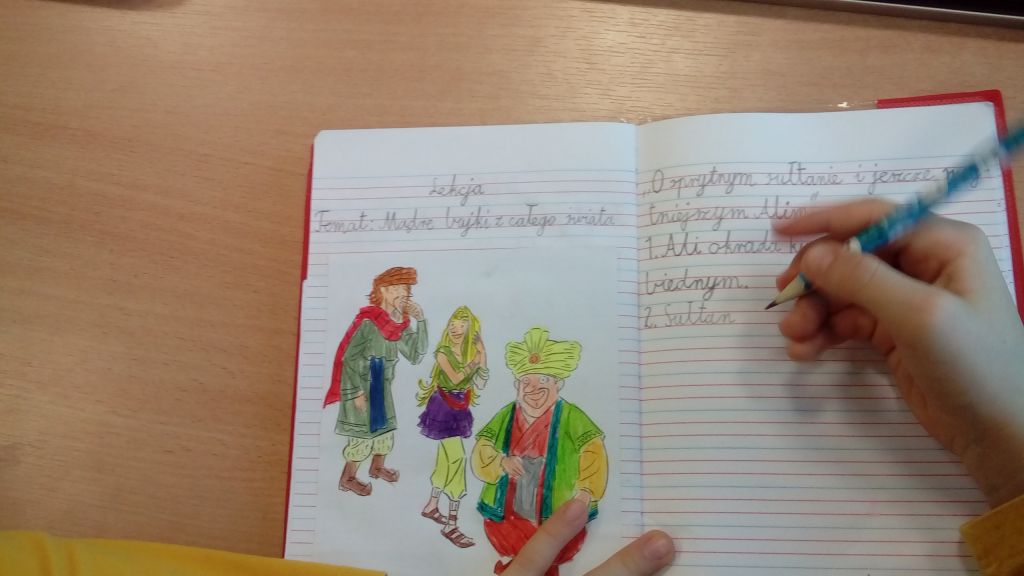 Lekcja
Temat: Mądre bajki z całego świata
„O sprytnym sułtanie i jeszcze
tniejszym Alim"
1. Ali okrada
biednym.
2. Sułtan